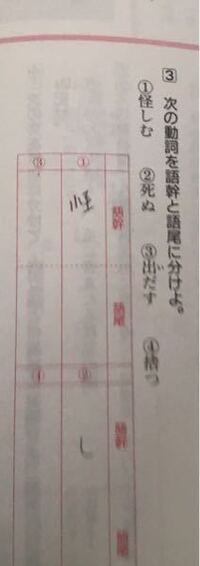 3 次の動詞を語幹と語尾に分けよ。
①怪しむ ②死ぬ ③出だす ④捨つ
語幹 語尾 語幹 語尾
① 怪 ② し
③ ④